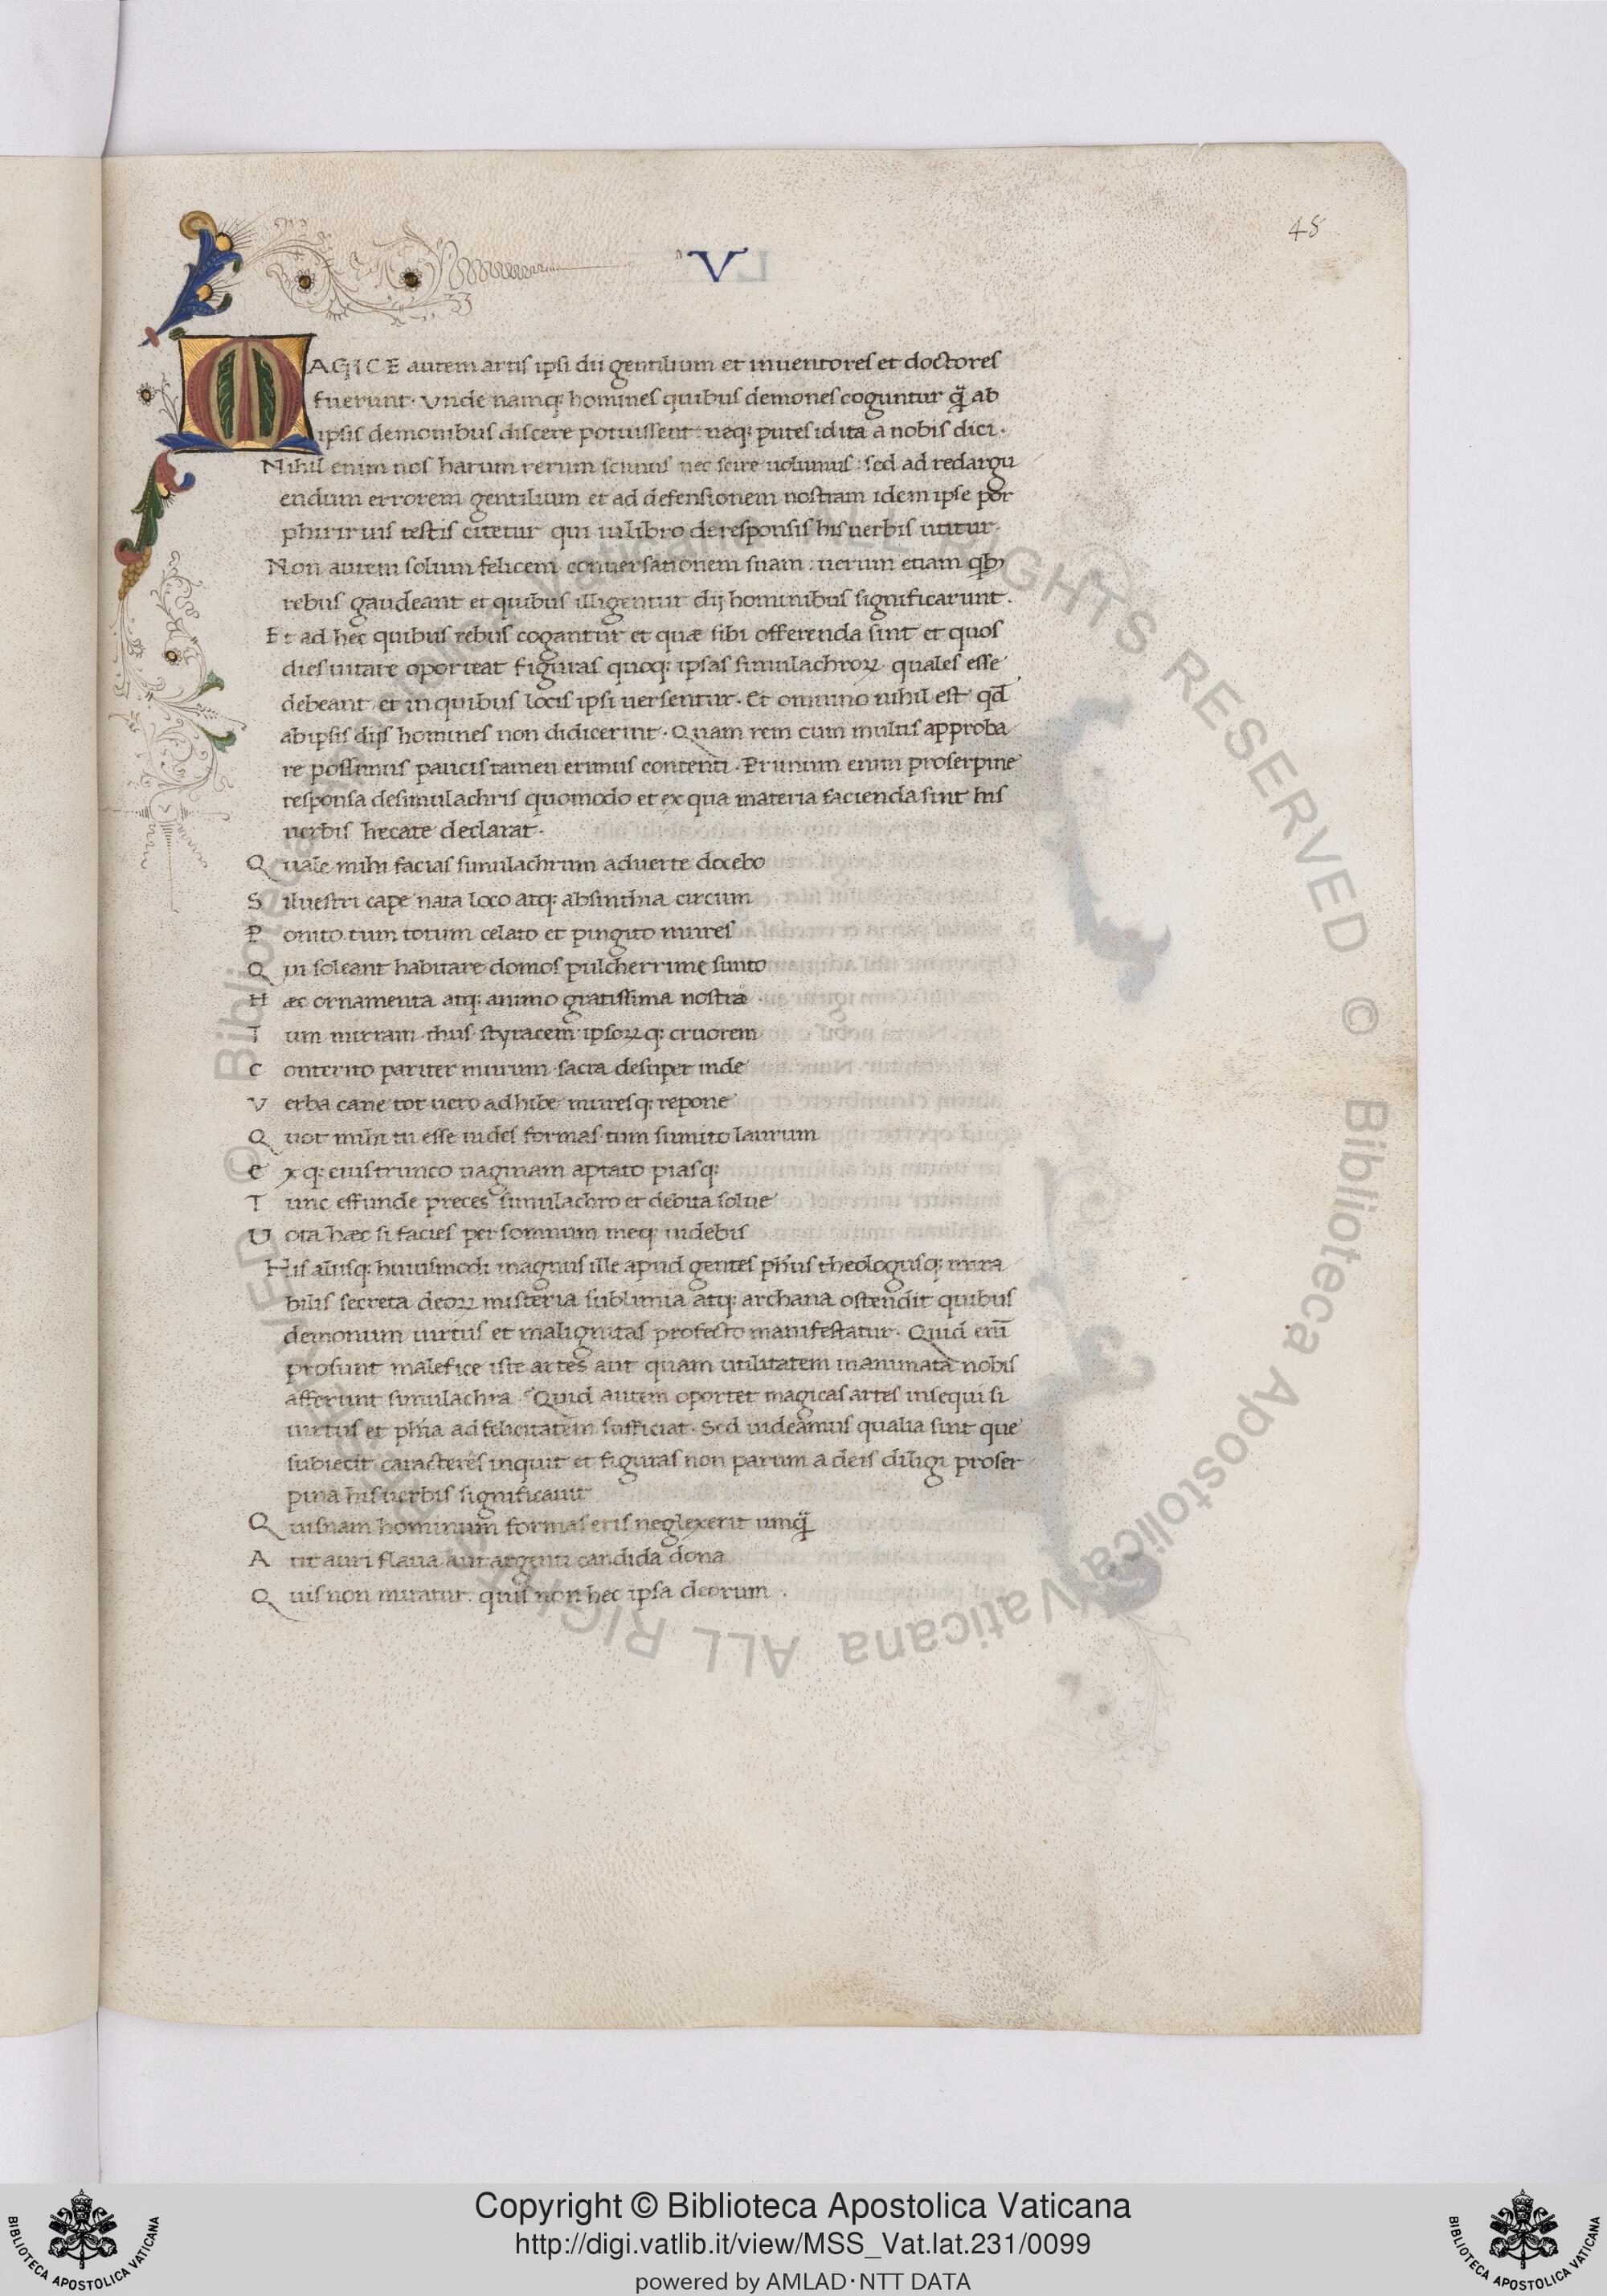 48
V
MAGICE autem artis ipsi dii gentilium et inuentores et doctores
fuerunt. Vnde namq; homines quibus demones coguntur qᷓ ab
ipsis demonibus discere potuissent: neq; putes id ita a nobis dici.
Nihil enim nos harum rerum scimus nec scire uolumus: sed ad redargu
endum errorem gentilium et ad defensionem nostram idem ipse por
phirius testis citetur qui in libro de responsis his uerbis utitur.
Non autem solum felicem conuersationem suam: uerum etiam qb;
rebus gaudeant et quibus illigentur dij hominibus significarunt.
Et ad hec quibus rebus cogantur et quæ sibi offerenda sint et quos
dies uitare oporteat figuras quoq; ipsas simulachroꝝ quales esse
debeant et in quibus locis ipsi uersentur. Et omnino nihil est qd̄
ab ipsis dijs homines non didicerint. Quam rem cum multis approba
re possimus paucis tamen erimus contenti. Primum enim proserpine
responsa de simulachris quomodo et ex qua materia facienda sint his
uerbis hecate declarat.
Quale mihi facias simulachrum aduerte docebo
Siluestri cape nata loco atq; absinthia circum
Ponito tum totum celato et pingito mures
Qui soleant habitare domos pulcherrime sunto
Hæc ornamenta atq; animo gratissima nostra
Tum mirram thus styracem ipsoꝝq; cruorem
Conterito pariter murum sacra desuper inde
Verba cane tot uero adhibe muresq; repone
Quot mihi tu esse uides formas tum sumito laurum
Exq; eius trunco uaginam aptato piasq;
Tunc effunde preces simulachro et debita solue
Vota hæc si facies per somnum meq; uidebis
His alijsq; huiusmodi magnus ille apud gentes ph'us theologusq; mira
bilis secreta deoꝝ misteria sublimia atq; archana ostendit quibus
demonum uirtus et malignitas profecto manifestatur. Quid eni̅
prosunt malefice iste artes aut quam utilitatem inanimata nobis
afferunt simulachra. Quid autem oportet magicas artes insequi si
uirtus et ph'ia ad felicitatem sufficiat. Sed uideamus qualia sint que
subiecit caracteres inquit et figuras non parum a deis diligi proser
pina his uerbis significauit
Quisnam hominum formas eris neglexerit umqᷓ
Aut auri flaua aut argenti candida dona
Quis non miratur. quis non hec ipsa deorum.
Copyright © Biblioteca Apostolica Vaticana
http://digi.vatlib.it/view/MSS_Vat.lat.231/0099
powered by AMLAD·NTT DATA
BIBLIOTECA APOSTOLICA VATICANA
BIBLIOTECA APOSTOLICA VATICANA
© Biblioteca Apostolica Vaticana ALL RIGHTS RESERVED © Biblioteca Apostolica Vaticana ALL RIGHTS RESERVED